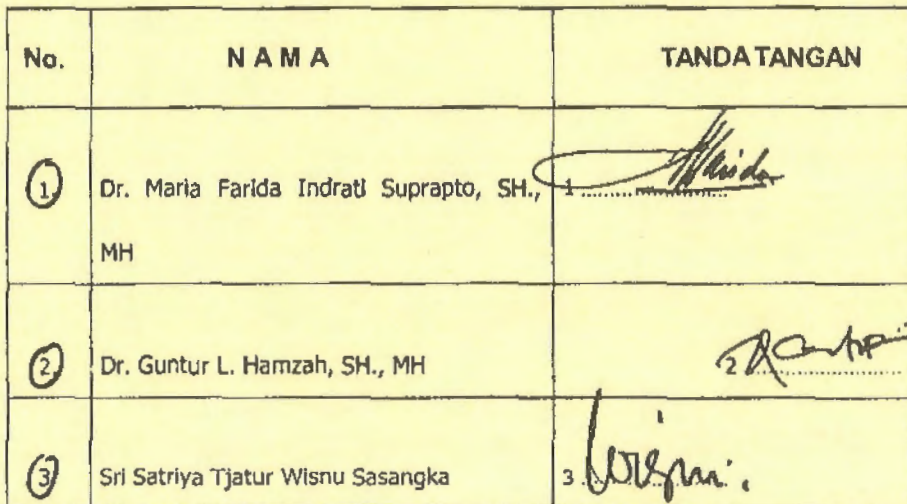 No. N A M A TANDATANGAN
1 Dr. Maria Farida Indrati Suprapto, SH., 1 ....................
MH
2 Dr. Guntur L. Hamzah, SH., MH 2 ....................
3 Sri Satriya Tjatur Wisnu Sasangka 3 ....................